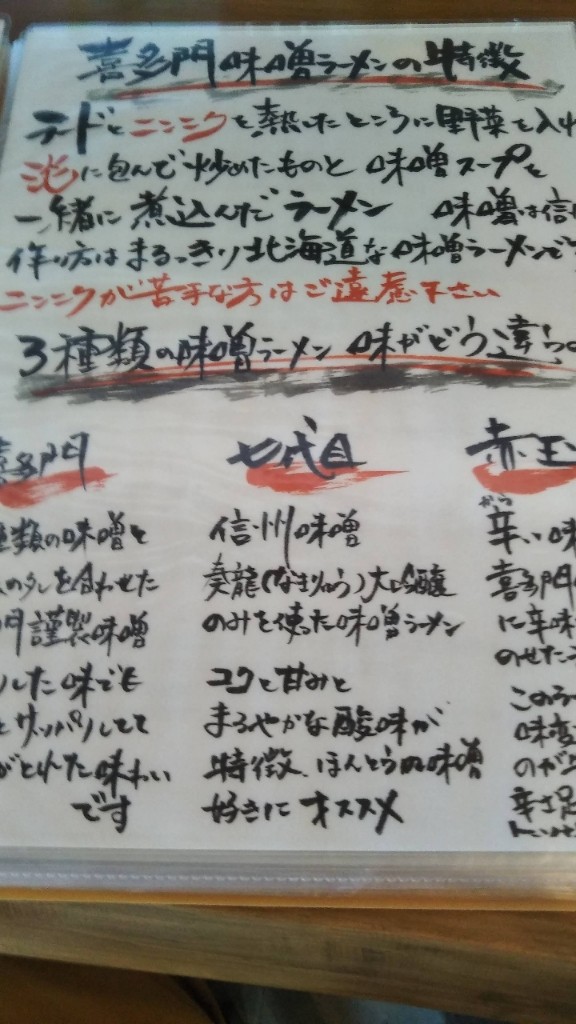 喜多門味噌ラーメンの特徴
ラードとニンニクを熱したところに野菜を入れ
に包んで炒めたものと 味噌スープを
一緒に煮込んだラーメン 味噌は信
作り方はまるっきり北海道な味噌ラーメンで
ニンニクが苦手な方はご遠慮下さい
3種類の味噌ラーメン 味がどう違う
喜多門
種類の味噌と
のタレを合わせた
門謹製味噌
した味でも
とサッパリしてて
がとれた味わい
です
七代目
信州味噌
奏龍(なきりゅう)大吟醸
のみを使った味噌ラーメン
コクと甘みと
まろやかな酸味が
特徴、ほんとうの味噌
好きにオススメ
赤玉
から
辛い味
喜多門
に辛味
のせた
この
味変
のが
辛さ足